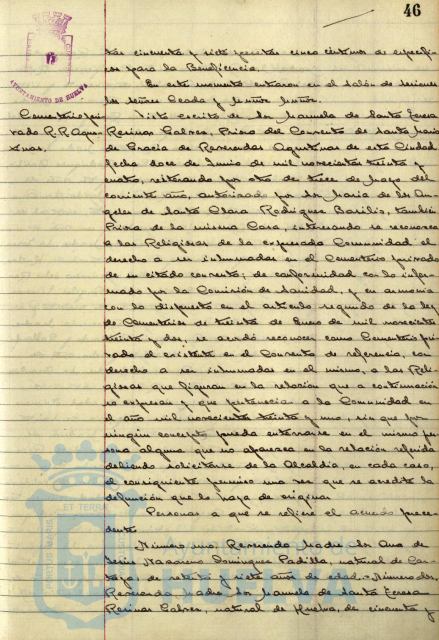 46
AYUNTAMIENTO DE HUELVA
tas cincuenta y siete pesetas cinco céntimos de específi-
cos para la Beneficencia.
En este momento entraron en el salón de sesiones
los señores Ceada y Muñoz Muñoz.
Cementerio pri-
vado R.R. Agus-
tinas.
Visto escrito de Sor Manuela de Santa Teresa
Resinas Galvez, Priora del Convento de Santa María
de Gracia de Reverendas Agustinas de esta Ciudad
fecha doce de Junio de mil novecientos treinta y
cuatro, reiterando por otro de trece de Mayo del
corriente año, autorizado por Sor María de los An-
geles de Santa Clara Rodríguez Basilio, también
Priora de la misma Casa, interesando se reconozca
a las Religiosas de la expresada Comunidad el
derecho a ser inhumadas en el Cementerio privado
de su citado convento; de conformidad con lo infor-
mado por la Comisión de Sanidad, y en armonía
con lo dispuesto en el artículo segundo de la ley
de Cementerios de treinta de Enero de mil novecientos
treinta y dos, se acordó reconocer como Cementerio pri-
vado al existente en el Convento de referencia, con
derecho a ser inhumadas en el mismo, a las Reli-
giosas que figuran en la relación que a continuación
se expresan y que pertenecía a la Comunidad en
el año mil novecientos treinta y uno, sin que por
ningún concepto pueda enterrarse en el mismo per-
sona alguna que no aparezca en la relación referida
debiendo solicitarse de la Alcaldía, en cada caso,
el consiguiente permiso una vez que se acredite la
defunción que lo haya de originar.
Personas a que se refiere el acuerdo prece-
dente
Número uno Reverenda Madre Sor Ana de
Jesús Nazareno Domínguez Padilla, natural de Car-
taya, de setenta y siete años de edad.- Número dos
Reverenda Madre Sor Manuela de Santa Teresa
Resinas Galvez, natural de Huelva, de cincuenta y
PORTUS MARIS ET TERRAE
Ayuntamiento de
HUELVA